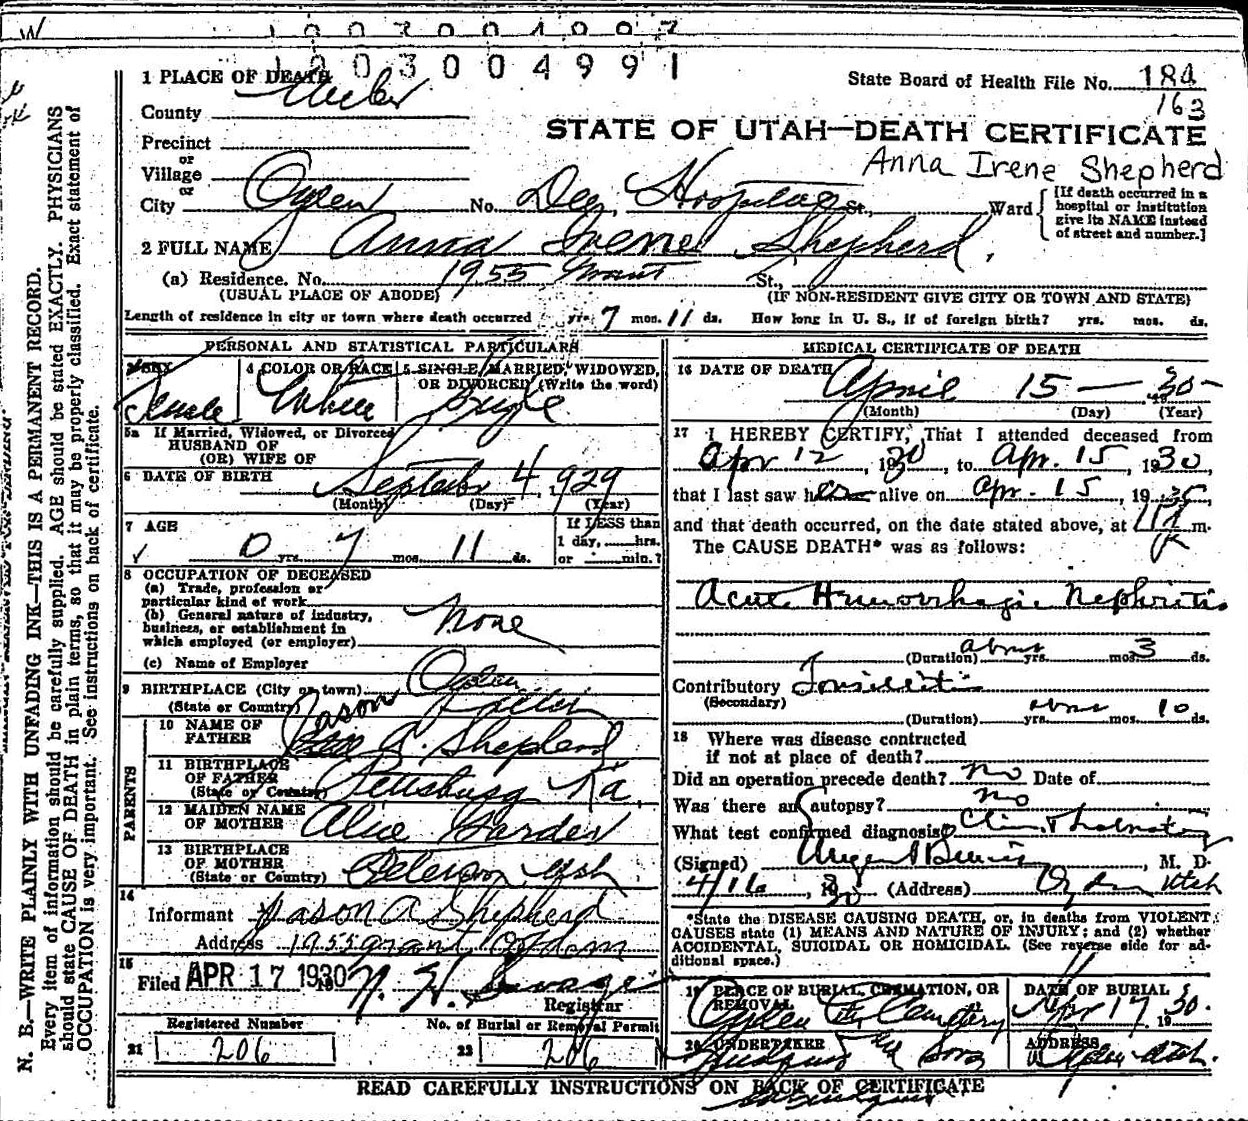 W
1 0 0 3 0 0 4 9 9 7
1 0 0 3 0 0 4 9 9 1
State Board of Health File No. 184
163
STATE OF UTAH—DEATH CERTIFICATE
Anna Irene Shepherd
1 PLACE OF DEATH
County Weber
Precinct
or
Village
or
City Ogden No. Dee Hospital St., Ward
[If death occurred in a
hospital or institution
give its NAME instead
of street and number.]
2 FULL NAME Anna Irene Shepherd,
(a) Residence. No. 1955 Grant St.,
(USUAL PLACE OF ABODE) (IF NON-RESIDENT GIVE CITY OR TOWN AND STATE)
Length of residence in city or town where death occurred yrs. 7 mos. 11 ds. How long in U. S., if of foreign birth? yrs. mos. ds.
PERSONAL AND STATISTICAL PARTICULARS
3 SEX Female
4 COLOR OR RACE White
5 SINGLE, MARRIED, WIDOWED,
OR DIVORCED (Write the word)
Single
5a If Married, Widowed, or Divorced
HUSBAND OF
(OR) WIFE OF
6 DATE OF BIRTH September 4, 1929
(Month) (Day) (Year)
7 AGE 0 yrs. 7 mos. 11 ds.
If LESS than
1 day, hrs.
or min.?
8 OCCUPATION OF DECEASED
(a) Trade, profession or
particular kind of work
(b) General nature of industry,
business, or establishment in
which employed (or employer)
None
(c) Name of Employer
9 BIRTHPLACE (City or town) Ogden
(State or Country)
PARENTS
10 NAME OF
FATHER Jason A. Shepherd
11 BIRTHPLACE
OF FATHER
(State or Country) Pittsburg Ka.
12 MAIDEN NAME
OF MOTHER Alice
13 BIRTHPLACE
OF MOTHER
(State or Country) Utah
14
Informant Jason A Shepherd
Address 1955 grant Ogden
15
Filed APR 17 1930 Savage
Registrar
Registered Number
21 206
No. of Burial or Removal Permit
22 206
MEDICAL CERTIFICATE OF DEATH
16 DATE OF DEATH April 15 — 1930
(Month) (Day) (Year)
17 I HEREBY CERTIFY, That I attended deceased from
Apr 12, 1930, to Apr. 15, 1930,
that I last saw her alive on Apr. 15, 1930,
and that death occurred, on the date stated above, at m.
The CAUSE DEATH* was as follows:
Acute Hemorrhagic Nephritis
(Duration) about yrs. mos. 3 ds.
Contributory Tonsillitis
(Secondary)
(Duration) about yrs. mos. 10 ds.
18 Where was disease contracted
if not at place of death?
Did an operation precede death? no Date of
Was there an autopsy? no
What test confirmed diagnosis?
(Signed) , M. D.
4/16, 1930 (Address) Ogden Utah
*State the DISEASE CAUSING DEATH, or, in deaths from VIOLENT
CAUSES state (1) MEANS AND NATURE OF INJURY; and (2) whether
ACCIDENTAL, SUICIDAL OR HOMICIDAL. (See reverse side for ad-
ditional space.)
19 PLACE OF BURIAL, CREMATION, OR
REMOVAL
Ogden City Cemetery
DATE OF BURIAL
Apr 17 1930.
20 UNDERTAKER
Sons
ADDRESS
Ogden Utah.
READ CAREFULLY INSTRUCTIONS ON BACK OF CERTIFICATE
N. B.—WRITE PLAINLY WITH UNFADING INK—THIS IS A PERMANENT RECORD.
Every item of information should be carefully supplied. AGE should be stated EXACTLY. PHYSICIANS
should state CAUSE OF DEATH in plain terms, so that it may be properly classified. Exact statement of
OCCUPATION is very important. See instructions on back of certificate.